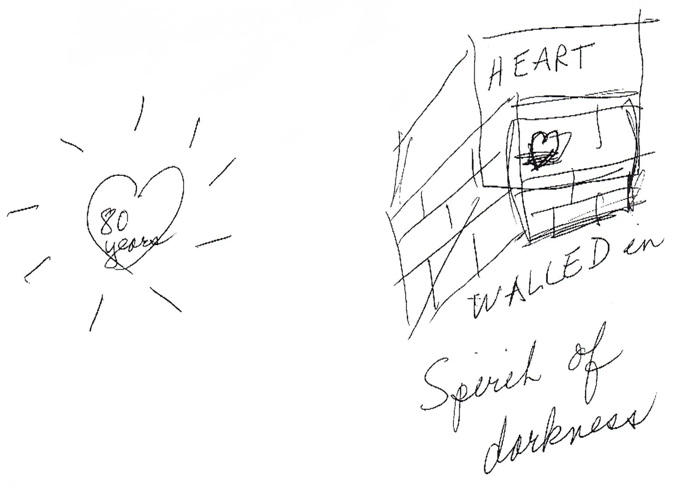 80
years
HEART
WALLED in
Spirit of
darkness